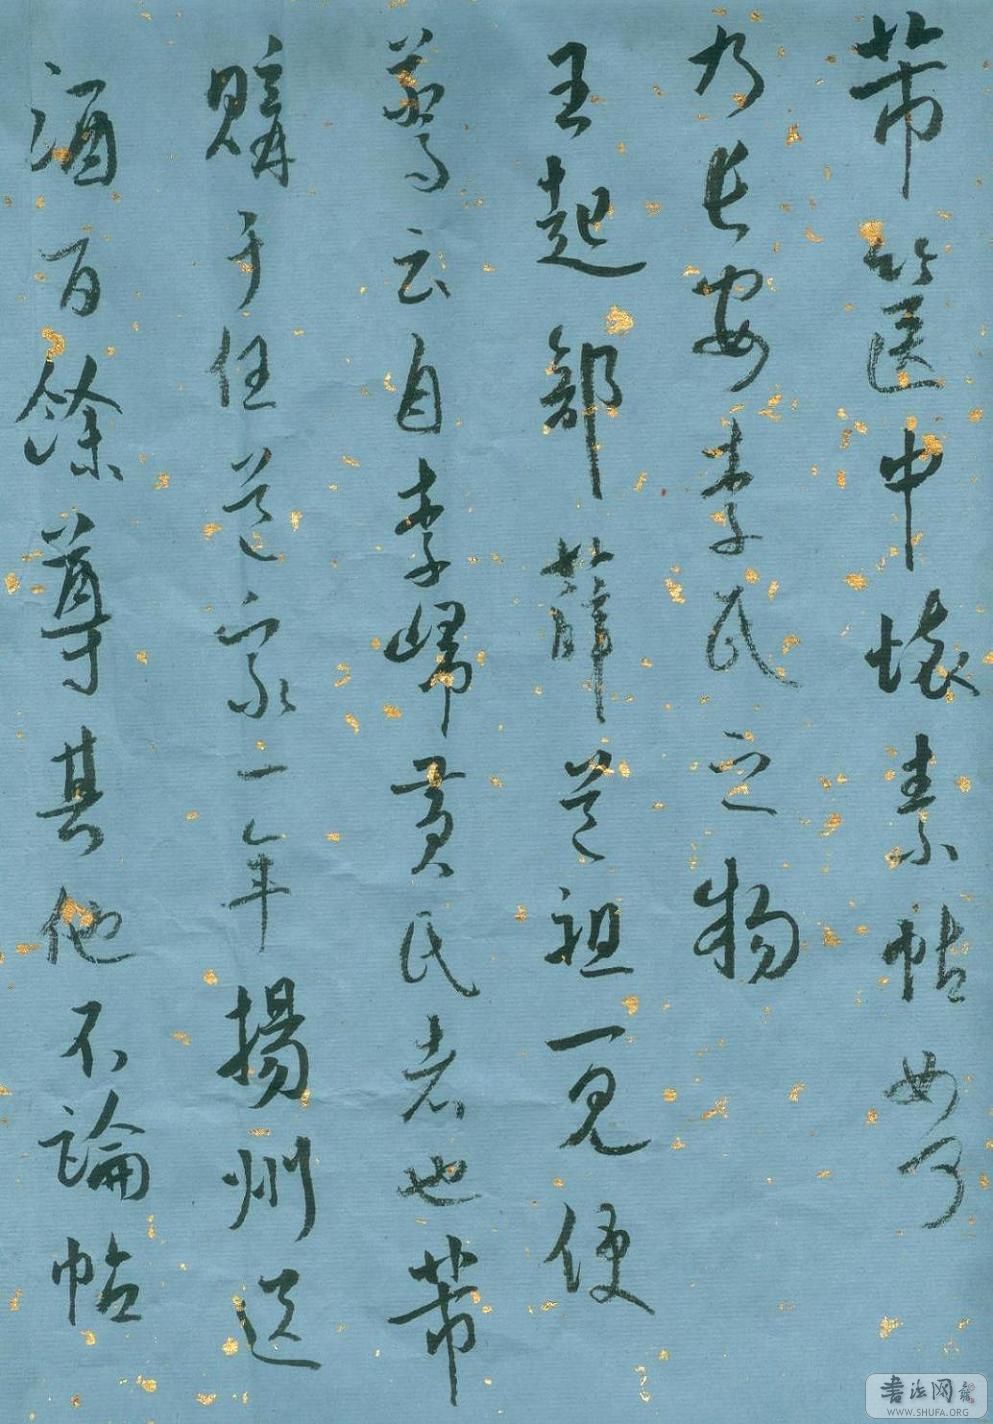 芾篋中懷素帖如何
乃長安李氏之物
王起部薛道祖一見便
驚云自李歸黃氏者也芾
購于任道家一年揚州送
酒百餘尊其他不論帖
書法网
WWW.SHUFA.ORG